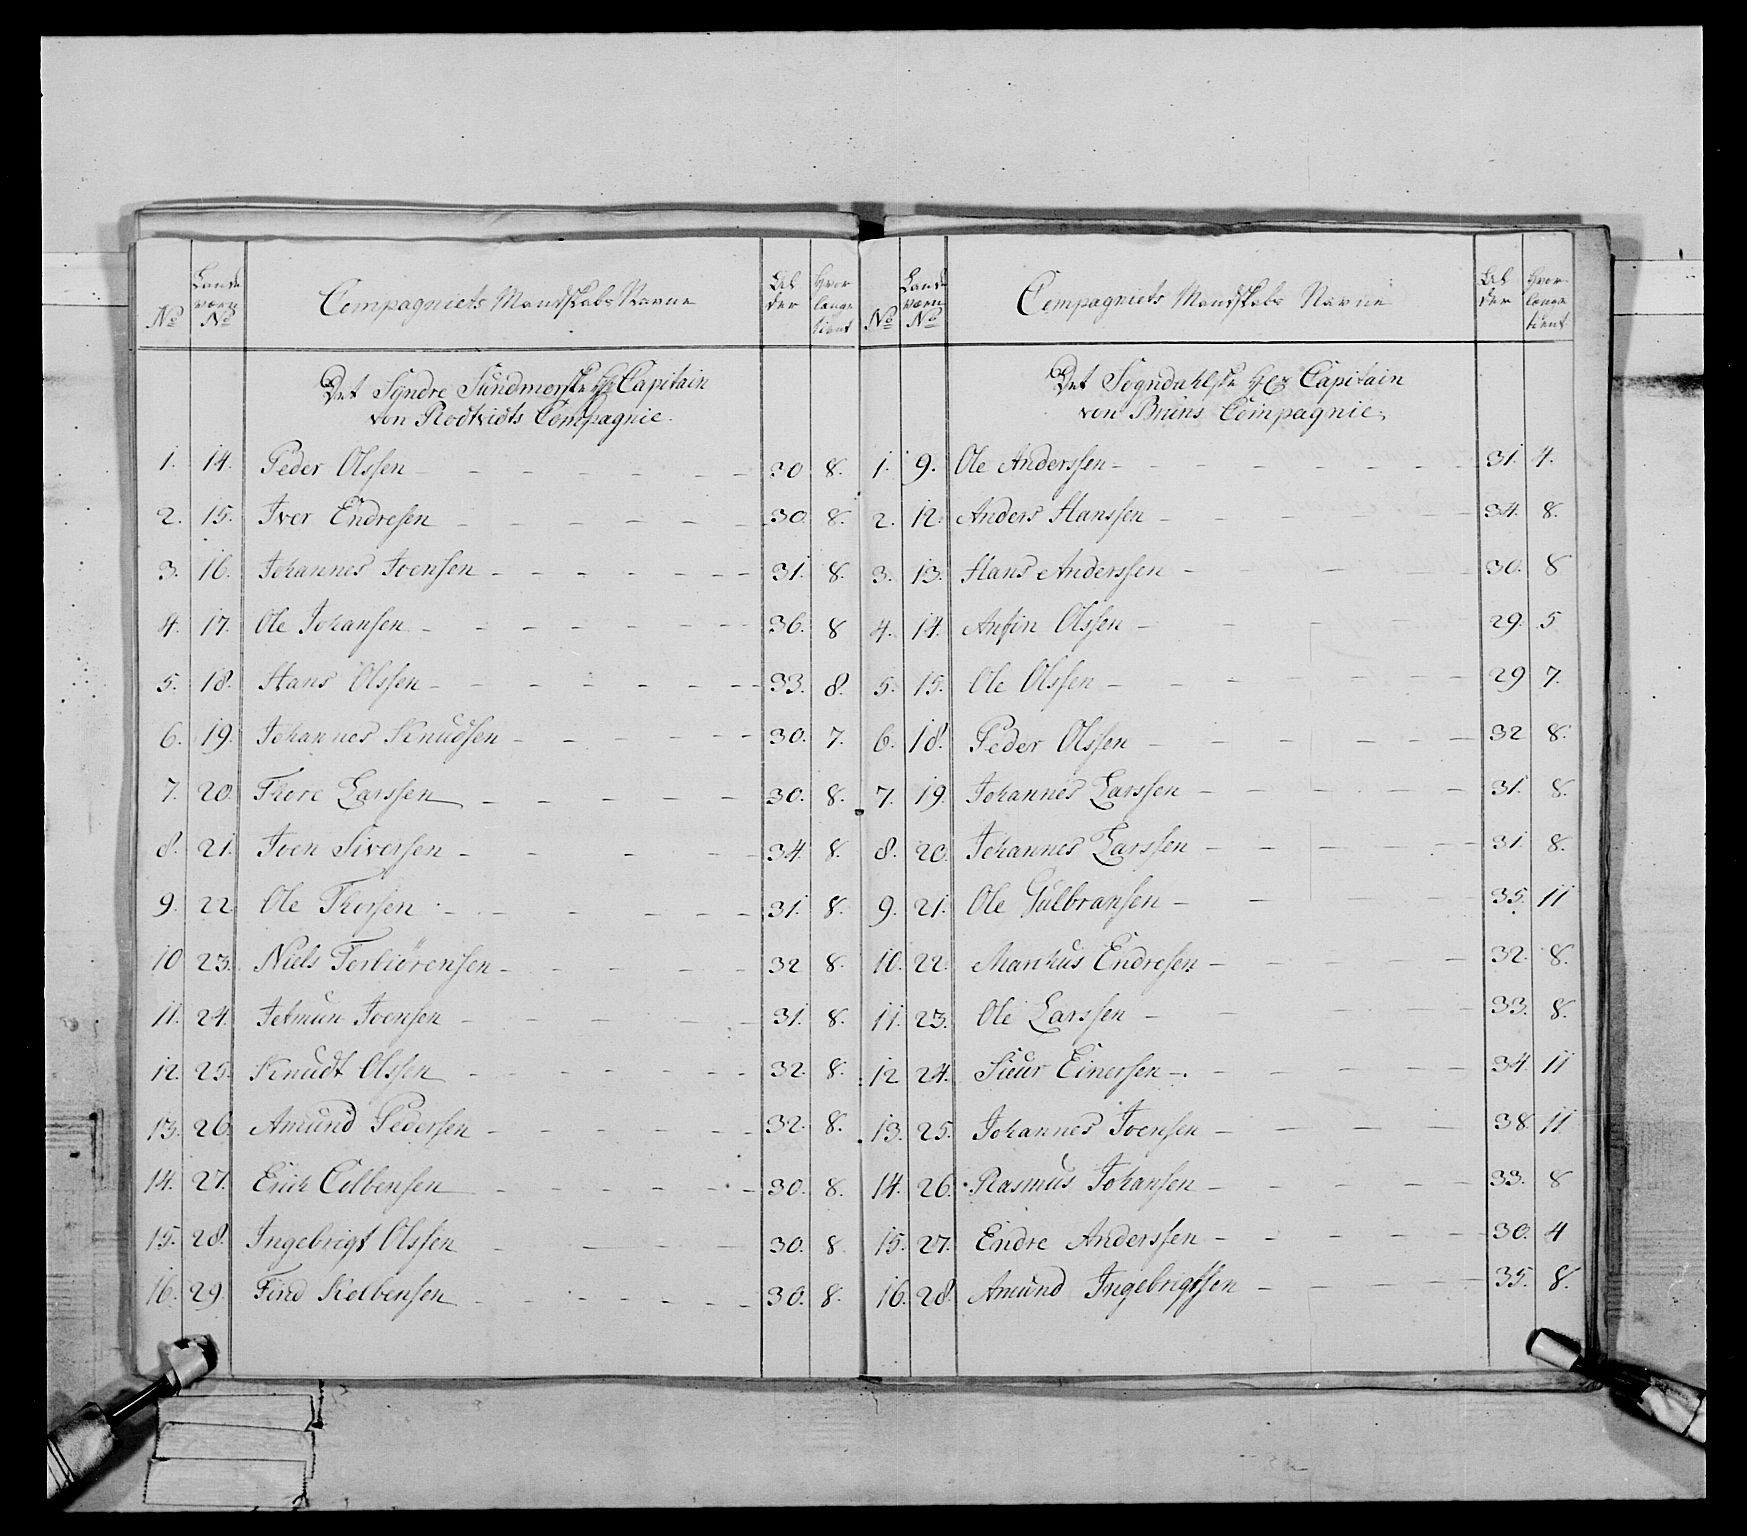 No
Lande
værn
No
Compagniets Mandskabs Navne
Al
der
Hvor
længe
tient
Det Syndre Sundmørske Hr Capitain
von Rodtvidts Compagnie.
1. 14. Peder Olssen 30 8.
2. 15. Iver Endresen 30. 8.
3. 16. Johannes Joensen 31. 8.
4. 17. Ole Johansen 36. 8
5. 18. Hans Olssen 33. 8.
6. 19. Johannes Knudsen 30. 7.
7. 20. Thore Larssen 30. 8.
8. 21. Joen Siversen 34. 8.
9. 22 Ole Thorsen 31. 8.
10 23. Niels Torbiörensen 32 8.
11. 24. Jetmun Joensen 31. 8.
12. 25. Knudt Olssen 32. 8.
13. 26. Amund Pedersen 32. 8.
14. 27. Erich Colbensen 30. 8.
15. 28. Ingebrigt Olssen 30. 8
16. 29. Find Kolbensen 30. 8.
No
Lande
værn
No
Compagniets Mandskabs Navne
Al
der
Hvor
længe
tient
Det Sogndahlske Hr Capitain
von Bruns Compagnie.
1. 9. Ole Anderssen 31. 4.
2. 12. Anders Hanssen 34. 8.
3. 13. Hans Anderssen 30. 8
4. 14. Anfin Olssen 29. 5
5. 15. Ole Olssen 29 7.
6. 18. Peder Olssen 32 8.
7. 19. Johannes Larssen 31. 8.
8. 20. Johannes Larssen 31. 8.
9. 21. Ole Gulbransen 35. 11
10. 22. Markus Endresen 32. 8.
11. 23. Ole Larssen 33. 8.
12 24. Siur Einersen 34. 11
13. 25. Johannes Joensen 38 11
14. 26. Rasmus Johansen 33. 8
15. 27. Endre Anderssen 30. 4
16. 28. Amund Ingebrigtsen 35. 8.